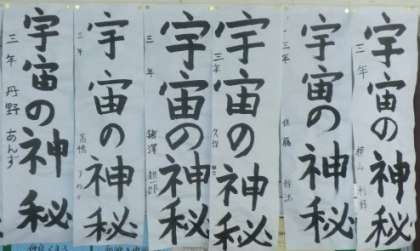 宇宙の神秘
三年 丹野あんず
宇宙の神秘
三年
宇宙の神秘
三年
宇宙の神秘
三年
宇宙の神秘
三年 佐藤
宇宙の神秘
三年